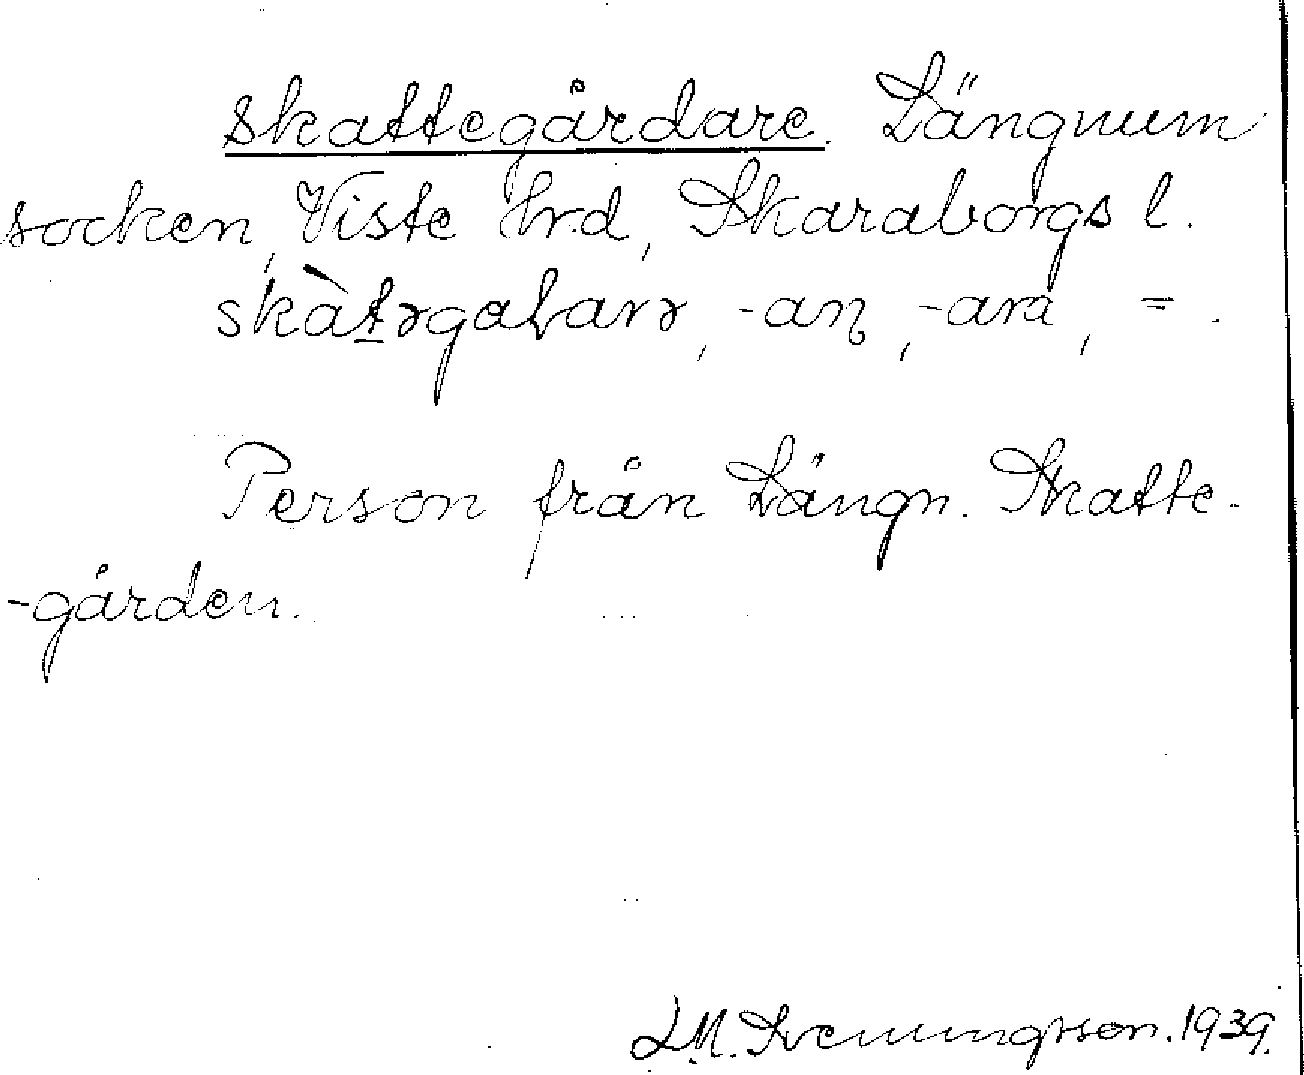 skattegårdare. Längnum
socken, Viste hrd, Skaraborgs l.
-an, -ara, = .
Person från Längn. Skatte-
-gården.
L.M. Svenungsson. 1939.